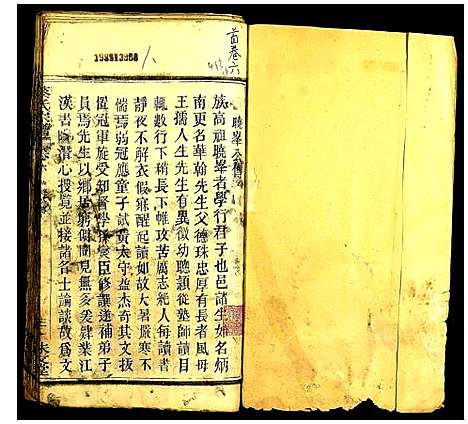 首卷六
曉峯公傳
族高祖曉峯者學行君子也邑諸生始名炳
南更名華翰先生父德珠忠厚有長者風母
王孺人生先生有異徵幼聰穎從塾師讀目
輒數行下稍長下帷攻苦厲志絕人每讀書
靜夜不解衣假寐醒起讀如故大暑嚴寒不
惴焉弱冠應童子試黃太守益杰奇其文拔
冠軍旋受知督學孫襄臣修撰遂補弟子
員焉先生以鄉居窮僻聞見無多爰肄業江
漢書院潛心搜覓並接諸名士論談故為文